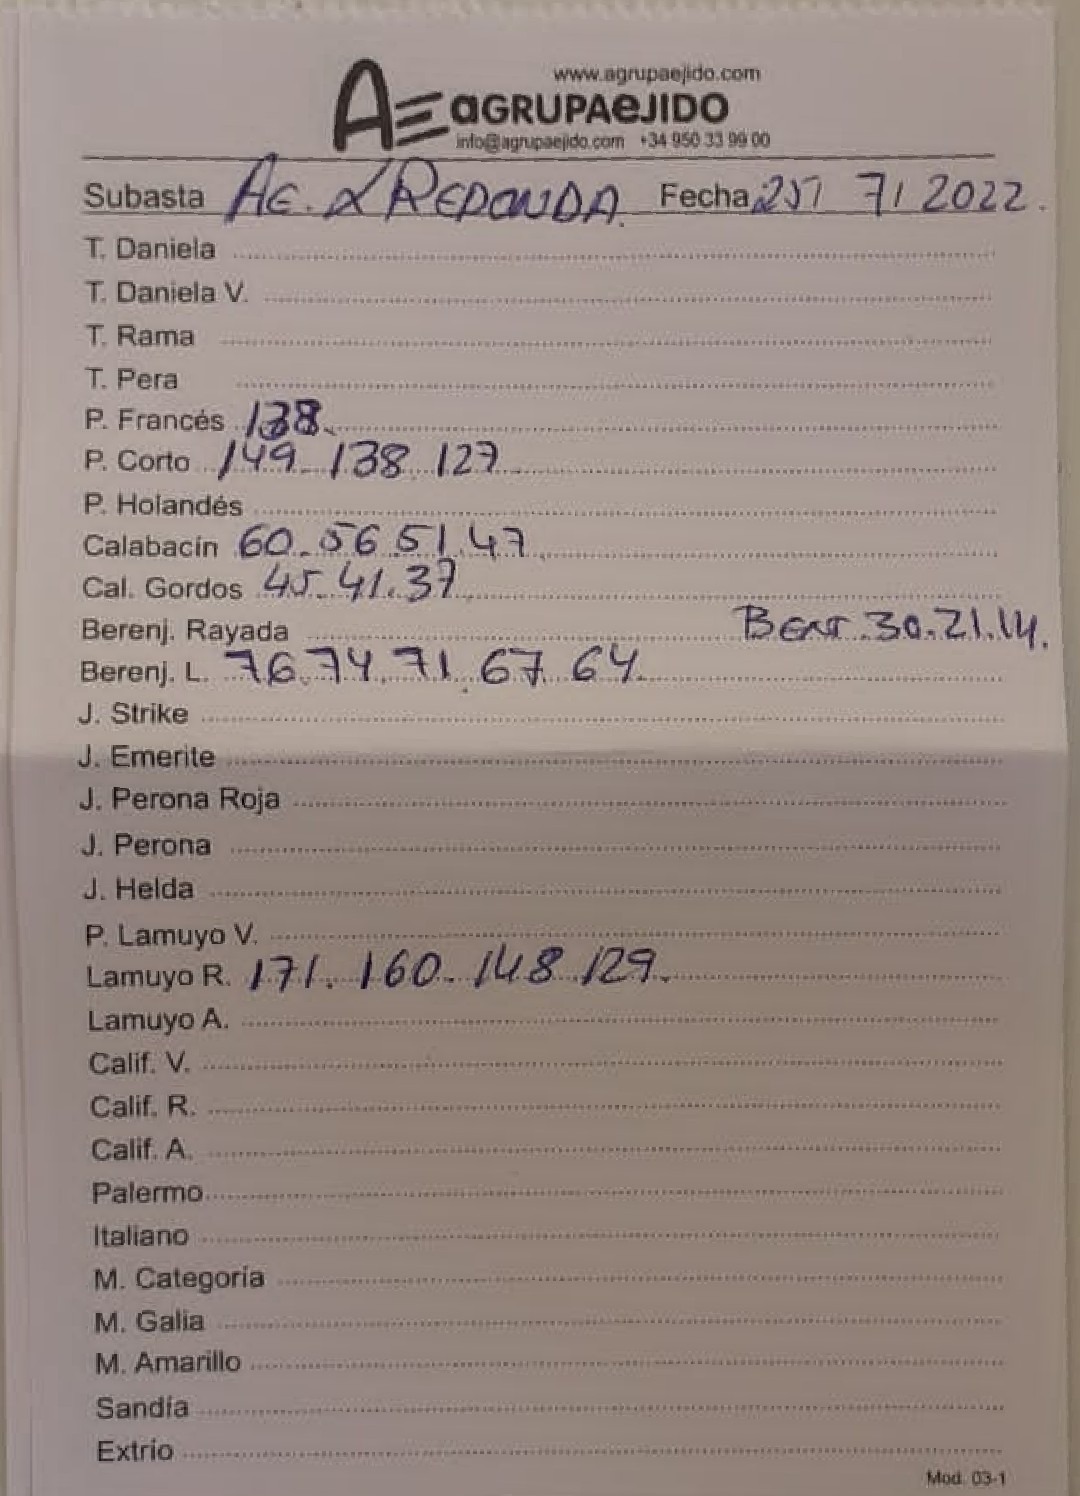 www.agrupaejido.com
AE aGRUPAeJIDO
info@agrupaejido.com +34 950 33 99 00
Subasta AG. LA REDONDA. Fecha 25/ 7/ 2022.
T. Daniela
T. Daniela V.
T. Rama
T. Pera
P. Francés 138.
P. Corto 149. 138. 127
P. Holandés
Calabacín 60. 56 51 47
Cal. Gordos 45. 41. 37
Berenj. Rayada 30. 21. 14.
Berenj. L. 76. 74. 71. 67. 64.
J. Strike
J. Emerite
J. Perona Roja
J. Perona
J. Helda
P. Lamuyo V.
Lamuyo R. 171. 160. 148 129.
Lamuyo A.
Calif. V.
Calif. R.
Calif. A.
Palermo
Italiano
M. Categoría
M. Galia
M. Amarillo
Sandía
Extrio
Mod. 03-1